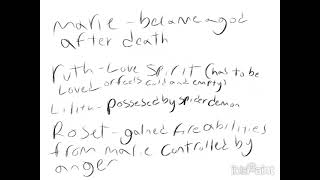 Marie - became a god
after death
Ruth - Love spirit (has to be
Loved or feels cold and empty)
Lilith - possessed by spider demon
Roset - gained fire abilities
from marie controlled by
anger